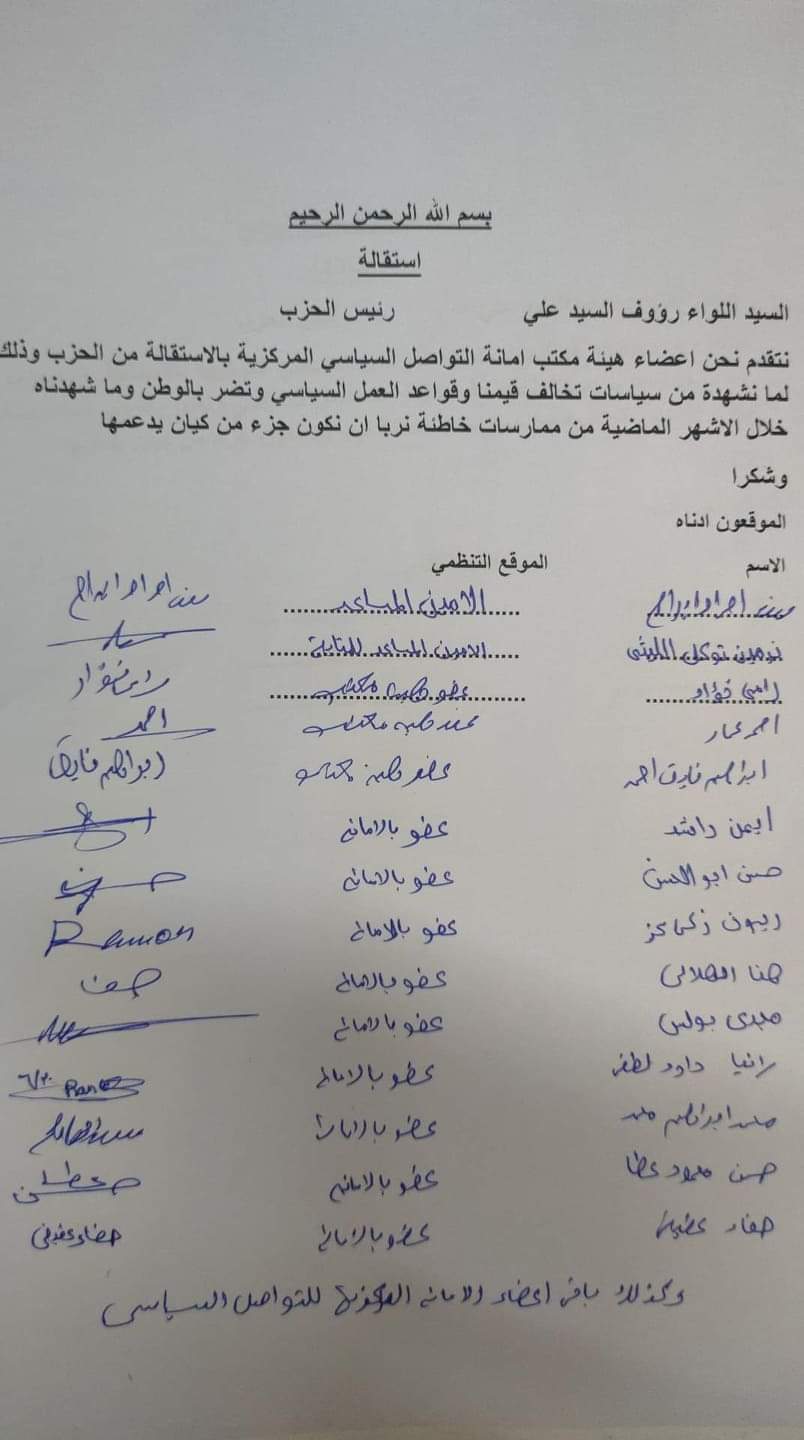 بسم الله الرحمن الرحيم
استقالة
السيد اللواء رؤوف السيد علي رئيس الحزب
نتقدم نحن اعضاء هيئة مكتب امانة التواصل السياسي المركزية بالاستقالة من الحزب وذلك
لما نشهدة من سياسات تخالف قيمنا وقواعد العمل السياسي وتضر بالوطن وما شهدناه
خلال الاشهر الماضية من ممارسات خاطئة نربا ان نكون جزء من كيان يدعمها
وشكرا
الموقعون ادناه
الاسم الموقع التنظمي
الامين المساعد
نرمين توكل الامين المساعد
رامي فؤاد عضو هيئة مكتب رامي فؤاد
احمد عمار عضو هيئة مكتب احمد
ابراهيم فايق احمد عضو هيئة مكتب ابراهيم فايق
ايمن راشد عضو بالامانه
حسن ابو الحسن عضو بالامانه
ريمون زكي عضو بالامانه Ramon
هنا الهلالى عضو بالامانه
مجدى بولس عضو بالامانه
رانيا داود لطفى عضو بالامانه
محمد ابراهيم محمد عضو بالامانة
حسن محمود عطا عضو بالامانه
عضو بالامانه
وكذلك باقى اعضاء الامانه المركزية للتواصل السياسى